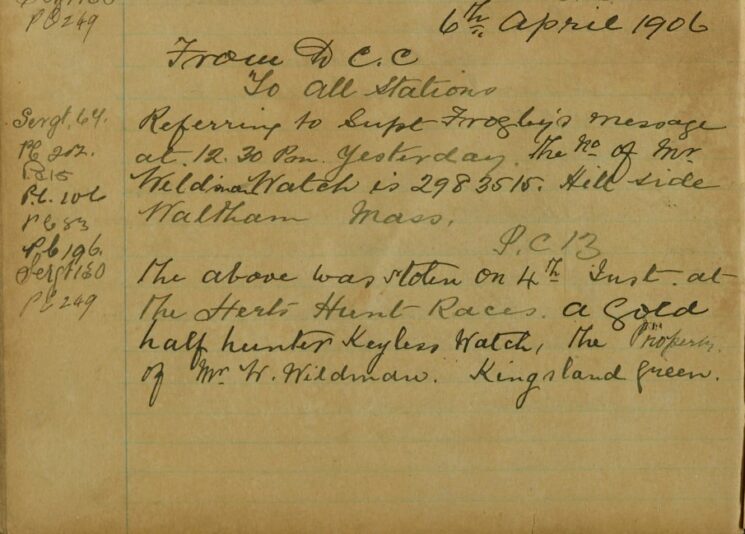 PC 249
6th April 1906
From D C. C
To All Stations
Sergt. 64.
PC 202.
PC 15
P.C. 106
PC 83
PC 196.
Sergt 130
PC 249
Referring to Supt Frogley's message
at 12.30 Pm. Yesterday. The No of Mr
Wildman Watch is 2983515. Hill side
Waltham Mass.
P.C 13
The above was stolen on 4th Inst. at
the Herts Hunt Races. a Gold
half hunter Keyless Watch, the Property
of Mr W. Wildman. Kingsland Green.